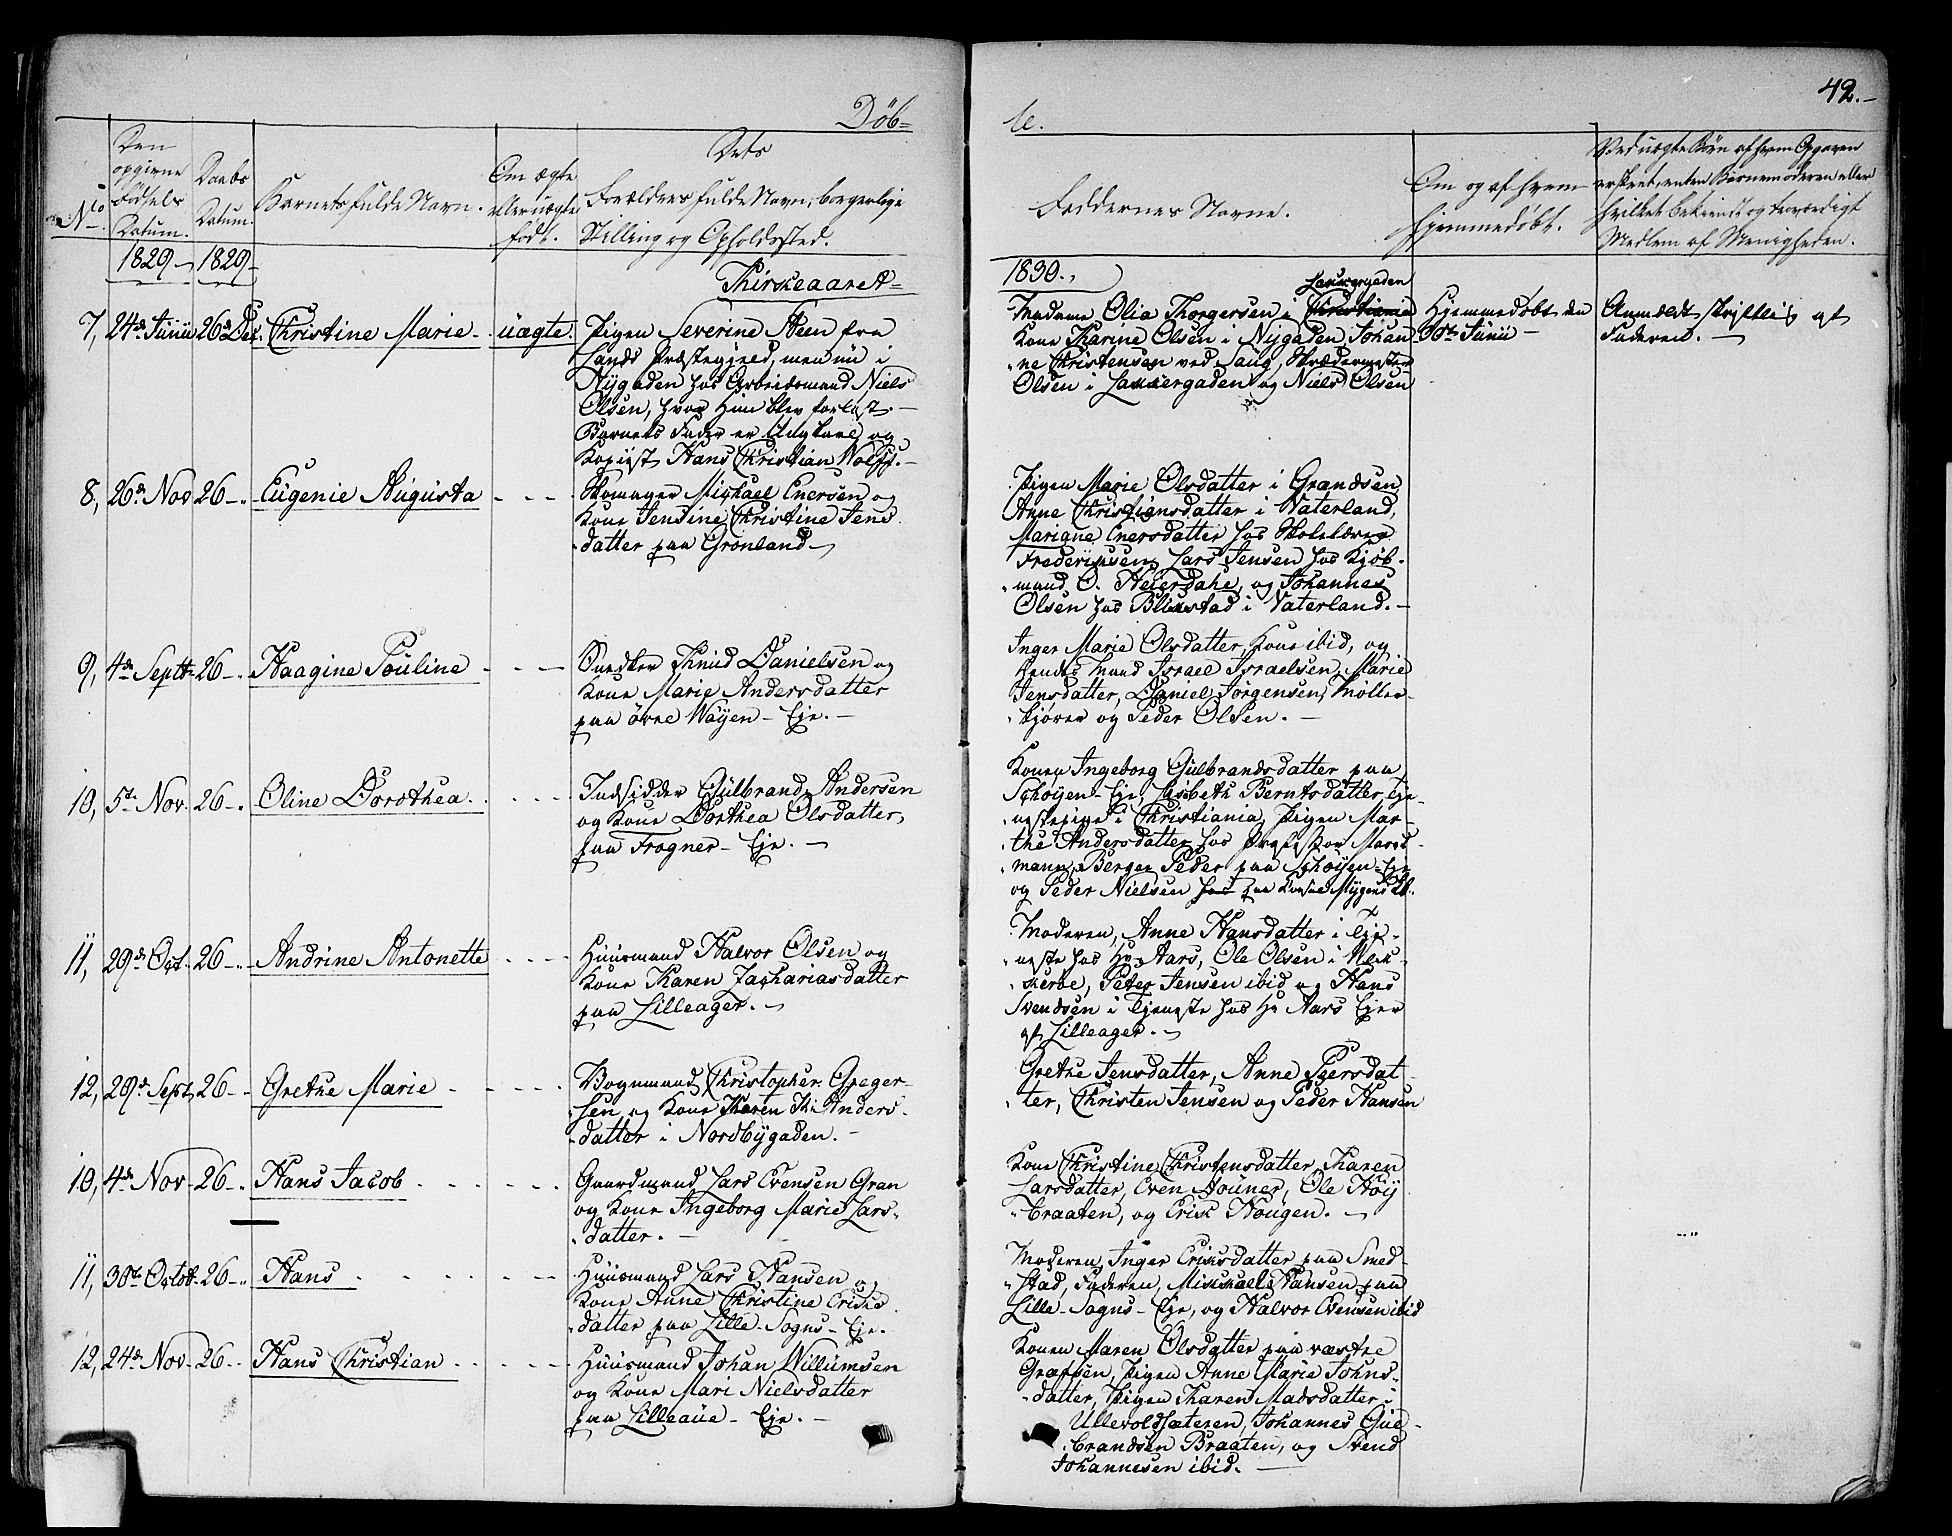 Döb-
te.
42.-
No.
Den
opgivne
Födsels
Datum.
Daabs
Datum
Barnets fulde Navn.
Om ægte
eller uægte
født.
Dets
Forældres fulde Navn, borgerlige
Stilling og Opholdssted.
Faddernes Navne.
Om og af hvem
hjemmedøbt.
Ved uægte Börn af hvem Opgaven
er skeet, enten Barnemoderen eller
hvilket bekiendt og troværdigt
Medlem af Menigheden.
1829 - 1829 -
Kirkeaaret -
1830.,
7, 24de Junii 26 Dec. Christine Marie - uægte.
Pigen Severine Steen fra
Lands Præstegjeld, men nu i
Nygaden hos Arbeidsmand Niels
Olsen, hvor Hun blev forløst. -
Barnets Fader er Ungkarl og
Kopiist Hans Christian Wolff. -
Lakkergaden
Madame Olia Thorgersen i Christiania
Kone Karine Olsen i Nygaden, Johan-
ne Christensen ved Saug, Skrædermester
Olsen i Lakkergaden og Niels Olsen
Hjemmedøbt den
30te Junii -
Anmeldt skriftlig af
Faderen. -
8, 26de Nov 26 -. Eugenie Augusta - - -
Skomager Michael Enersen og
Kone Jensine Christine Jens
datter paa Grønland -
Pigen Marie Olsdatter i Grændsen
Anne Christiansdatter i Vaterland,
Mariane Enersdatter hos Skolelærer
Frederiksen, Lars Jensen hos Kjøb-
mand O. Heierdahl, og Johannes
Olsen hos Blikstad i Vaterland. -
9, 4de Septb 26 -. Haagine Pouline - - -
Snedker Knud Danielsen og
Kone Marie Andersdatter
paa övre Waÿen - Eje. -
Inger Marie Olsdatter, Kone ibid, og
hendes Mand Israel Israelsen, Marie
Jensdatter, Daniel Jørgensen, Møller-
kjører og Peder Olsen. -
10, 5te Nov. 26 -. Oline Dorothea. - - -
Indsidder Gulbrand Andersen
og Kone Dorthea Olsdatter,
paa Frogner - Eje. -
Konen Ingeborg Gulbrandsdatter paa
Schøyen - Eje, Lisbeth Berntsdatter, Tje-
nestepige i Christiania, Pigen Mar-
the Andersdatter hos
mann, Berger Peder paa Schøyen - Eje
og Peder Nielsen hos paa
11, 29de Oct. 26 -. Andrine Antonette - - -
Huusmand Halvor Olsen og
Kone Karen Zachariasdatter
paa Lilleager. -
Moderen, Anne Hansdatter i Tje-
neste hos Hr Aars, Ole Olsen i Vek-
kerøe, Peter Jensen ibid og Hans
Svendsen i Tjeneste hos Hr Aars Ejer
af Lilleager. -
12, 29de Sept. 26 -. Grethe Marie - - - -
Vognmand Christopher Greger-
sen og Kone Karen K: Anders-
datter i Nordbygaden. -
Grethe Jensdatter, Anne Peersdat-
ter, Christen Jensen og Peder Hansen
10, 4de Nov - 26 -. Hans Jacob - - - -
Gaardmand Lars Evensen Gran
og Kone Ingeborg Marie Lars-
datter. -
Kone Christine Christensdatter, Karen
Larsdatter, Even Aouner, Ole Høy
braaten, og Erik Hougen. -
11, 30te Octob. 26 -. Hans - - - - -
Huusmand Lars Hansen og
Kone Anne Christine Eriks
datter paa Lille - Sogns - Eje.
Moderen, Inger Eriksdatter paa Smed-
stad, Faderen, Mikkael Hansen paa
Lille - Sogns - Eje, og Halvor Evensen ibid
12, 24de Nov - 26 -. Hans Christian - - - -
Huusmand Johan Willumsen
og Kone Mari Nielsdatter
paa Lilleaue - Eje. -
Konen Maren Olsdatter paa væstre
Grefsen, Pigen Anne Marie Johns-
datter, Pigen Karen Madsdatter i
Ullevoldsæteren, Johannes Gul-
brandsen Braaten, og Svend
Johannesen ibid. -